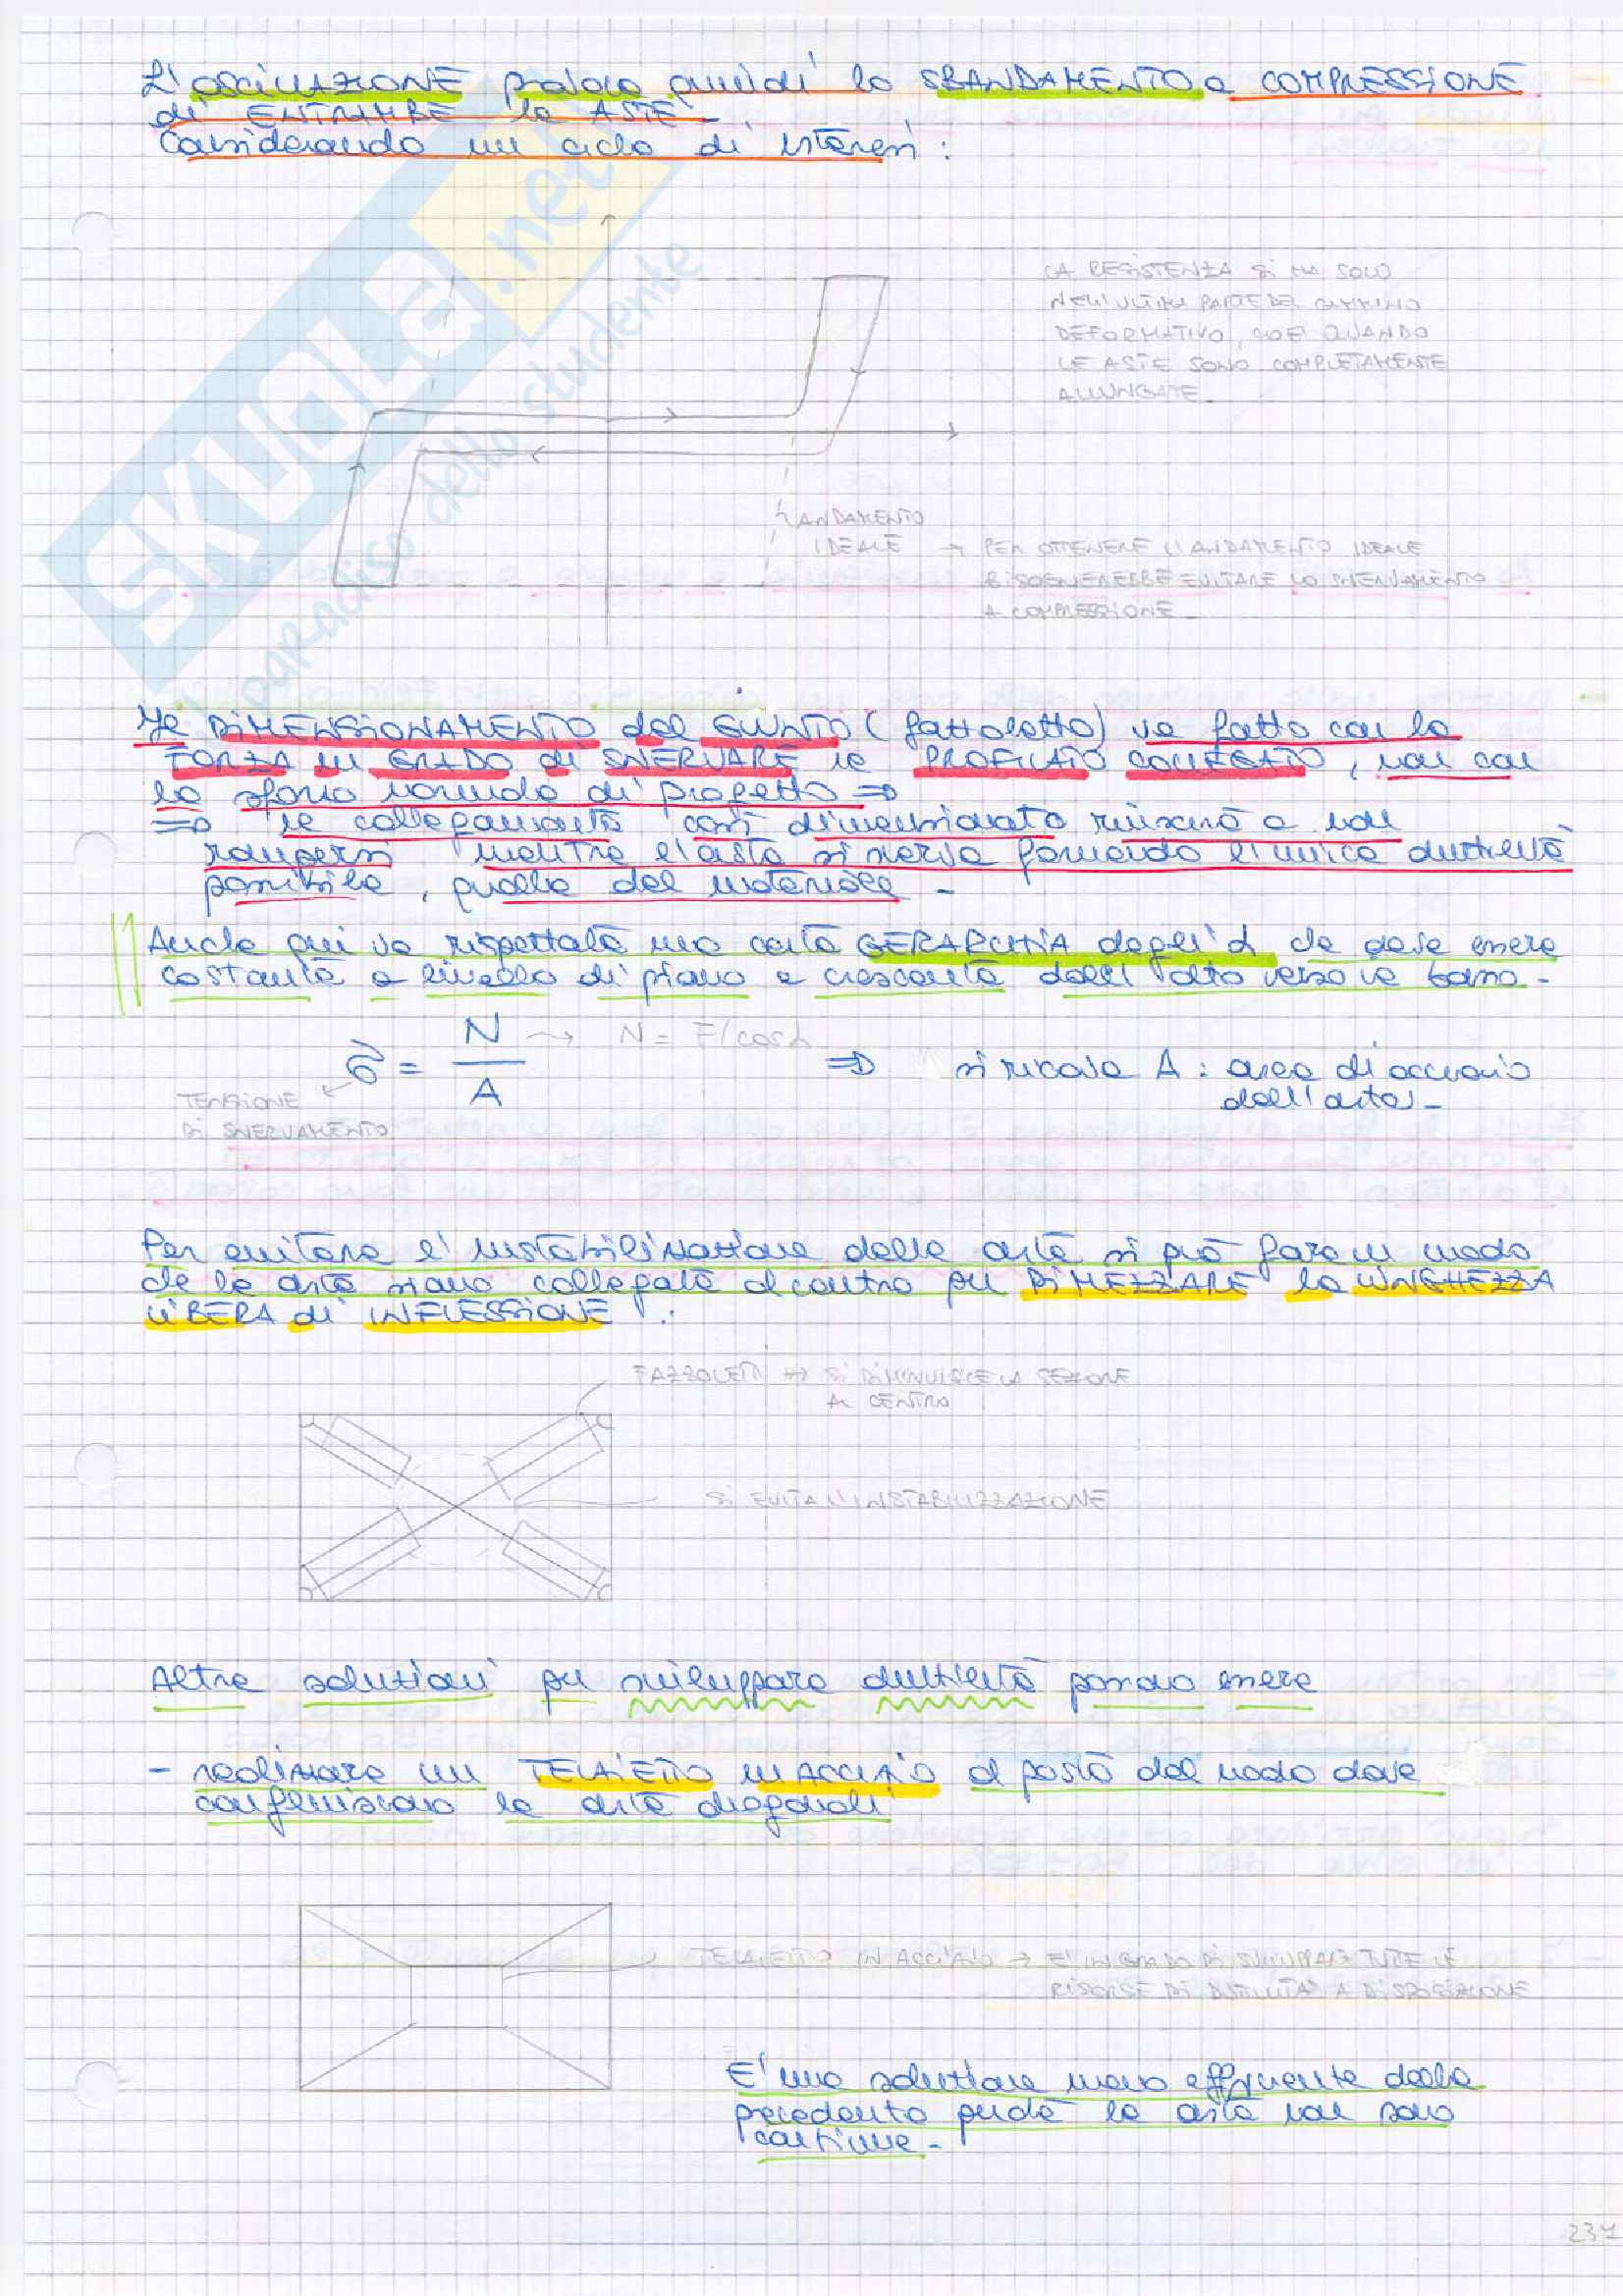 L'OSCILLAZIONE produce quindi lo SBANDAMENTO a COMPRESSIONE
di ENTRAMBE le ASTE.
Considerando un ciclo di isteresi:
LA RESISTENZA SI HA SOLO
NELL'ULTIMA PARTE DEL CAMMINO
DEFORMATIVO, CIOE' QUANDO
LE ASTE SONO COMPLETAMENTE
ALLUNGATE.
ANDAMENTO
IDEALE → PER OTTENERE L'ANDAMENTO IDEALE
BISOGNEREBBE EVITARE LO SNERVAMENTO
A COMPRESSIONE.
SKUOLA.net
il paradiso dello studente
Il DIMENSIONAMENTO del GIUNTO (fazzoletto) va fatto con la
FORZA in GRADO di SNERVARE il PROFILATO COLLEGATO, non con
lo sforzo normale di progetto ⇒
⇒ il collegamento così dimensionato riuscirà a non
rompersi mentre l'asta si snerva fornendo l'unica duttilità
possibile, quella del materiale.
Anche qui va rispettata una certa GERARCHIA degli α che deve essere
costante a livello di piano e crescente dall'alto verso il basso.
σ = N / A → N = F/cosα ⇒ si ricava A: area di acciaio
dell'asta.
TENSIONE
DI SNERVAMENTO
Per evitare l'instabilizzazione delle aste si può fare in modo
che le aste siano collegate al centro per DIMEZZARE la LUNGHEZZA
LIBERA di INFLESSIONE:
FAZZOLETTI → SI DIMINUISCE LA SEZIONE
AL CENTRO
SI EVITA L'INSTABILIZZAZIONE
Altre soluzioni per sviluppare duttilità possono essere
- realizzare un TELAIETTO in ACCIAIO al posto del nodo dove
confluiscono le aste diagonali
TELAIETTO IN ACCIAIO → E' IN GRADO DI SVILUPPARE TUTTE LE
RISORSE DI DUTTILITA' A DISPOSIZIONE
E' una soluzione meno efficiente della
precedente perché le aste non sono
continue.
237